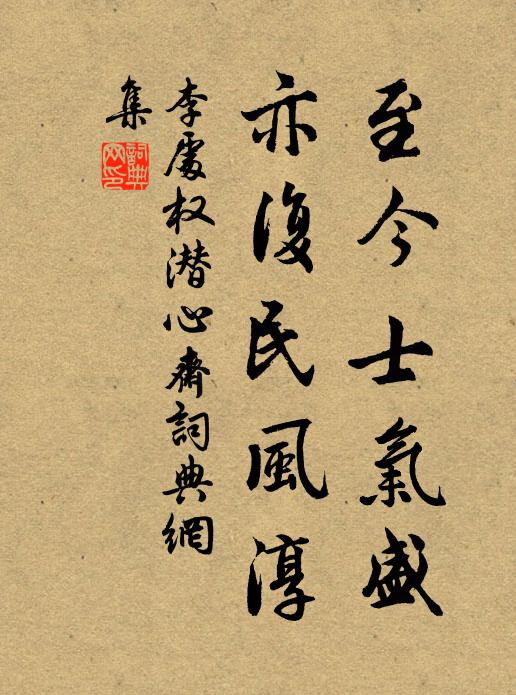 至今士氣盛
亦復民風淳
李處权潜心齋詞典網
集
詞典網印